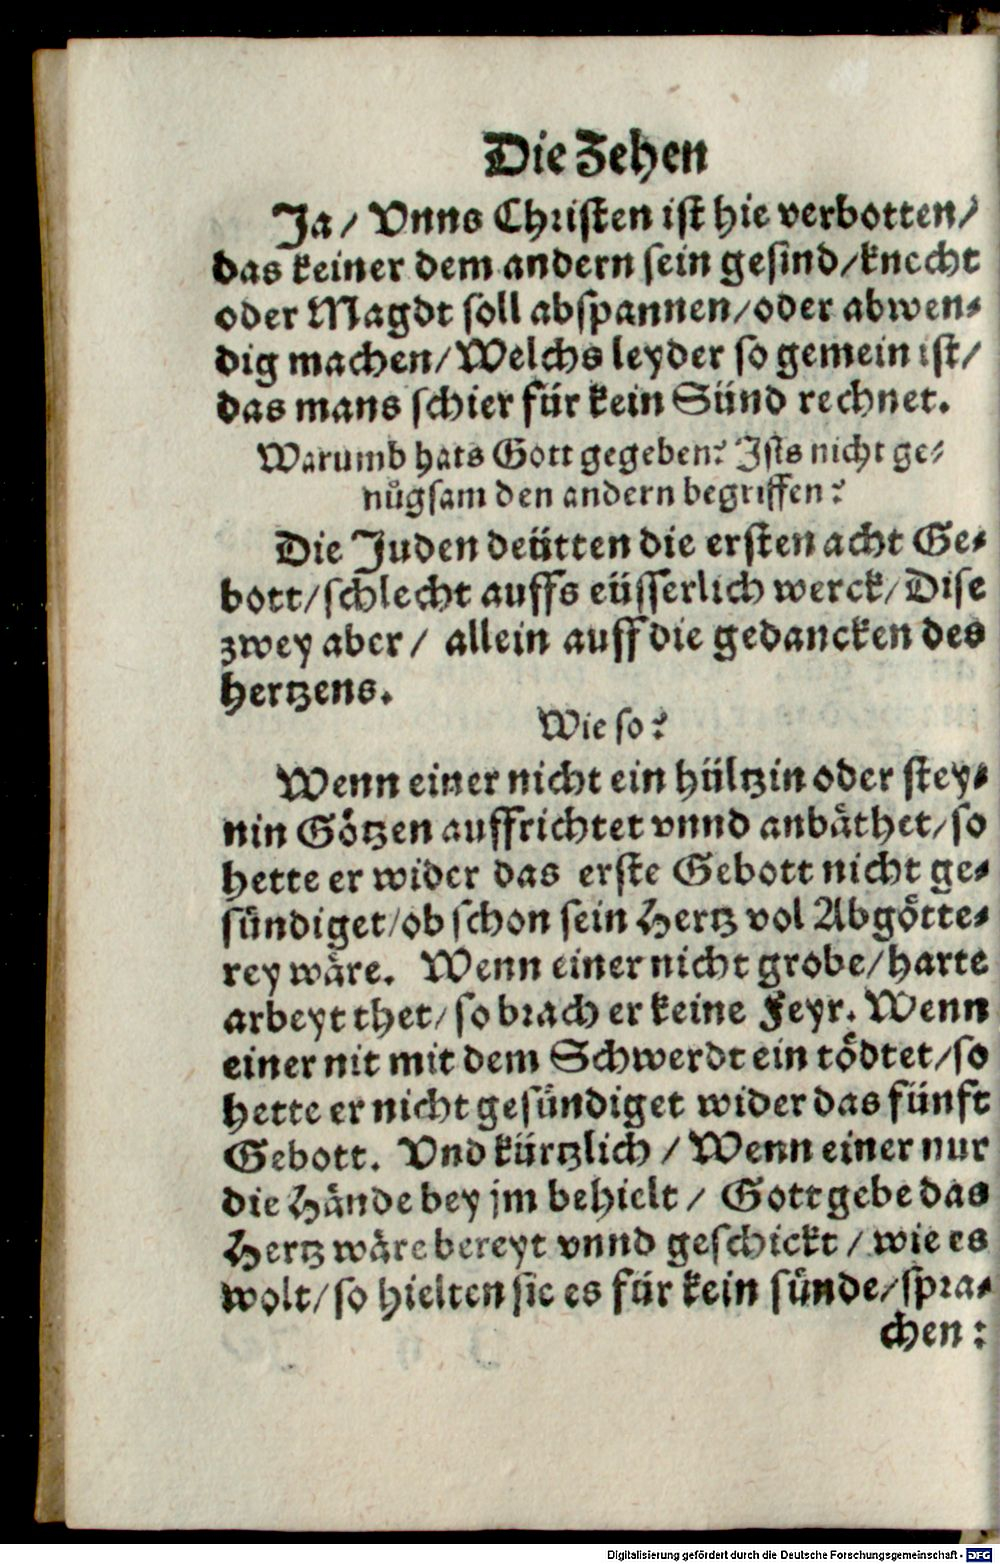 Die Zehen
Ja / Vnns Christen ist hie verbotten /
das keiner dem andern sein gesind / knecht
oder Magdt soll abspannen / oder abwen⸗
dig machen / Welchs leyder so gemein ist /
das mans schier für kein Sünd rechnet.
Warumb hats Gott gegeben? Ists nicht ge⸗
nůgsam den andern begriffen?
Die Juden deütten die ersten acht Ge⸗
bott / schlecht auffs eüsserlich werck / Dise
zwey aber / allein auff die gedancken des
hertzens.
Wie so?
Wenn einer nicht ein hültzin oder stey⸗
nin Götzen auffrichtet vnnd anbäthet / so
hette er wider das erste Gebott nicht ge⸗
sündiget / ob schon sein Hertz vol Abgötte⸗
rey wäre. Wenn einer nicht grobe / harte
arbeyt thet / so brach er keine Feyr. Wenn
einer nit mit dem Schwerdt ein tödtet / so
hette er nicht gesündiget wider das fünfft
Gebott. Vnd kürtzlich / Wenn einer nur
die Hände bey jm behielt / Gott gebe das
Hertz wäre bereyt vnnd geschickt / wie es
wolt / so hielten sie es für kein sünde / spra⸗
chen:
Digitalisierung gefördert durch die Deutsche Forschungsgemeinschaft - DFG